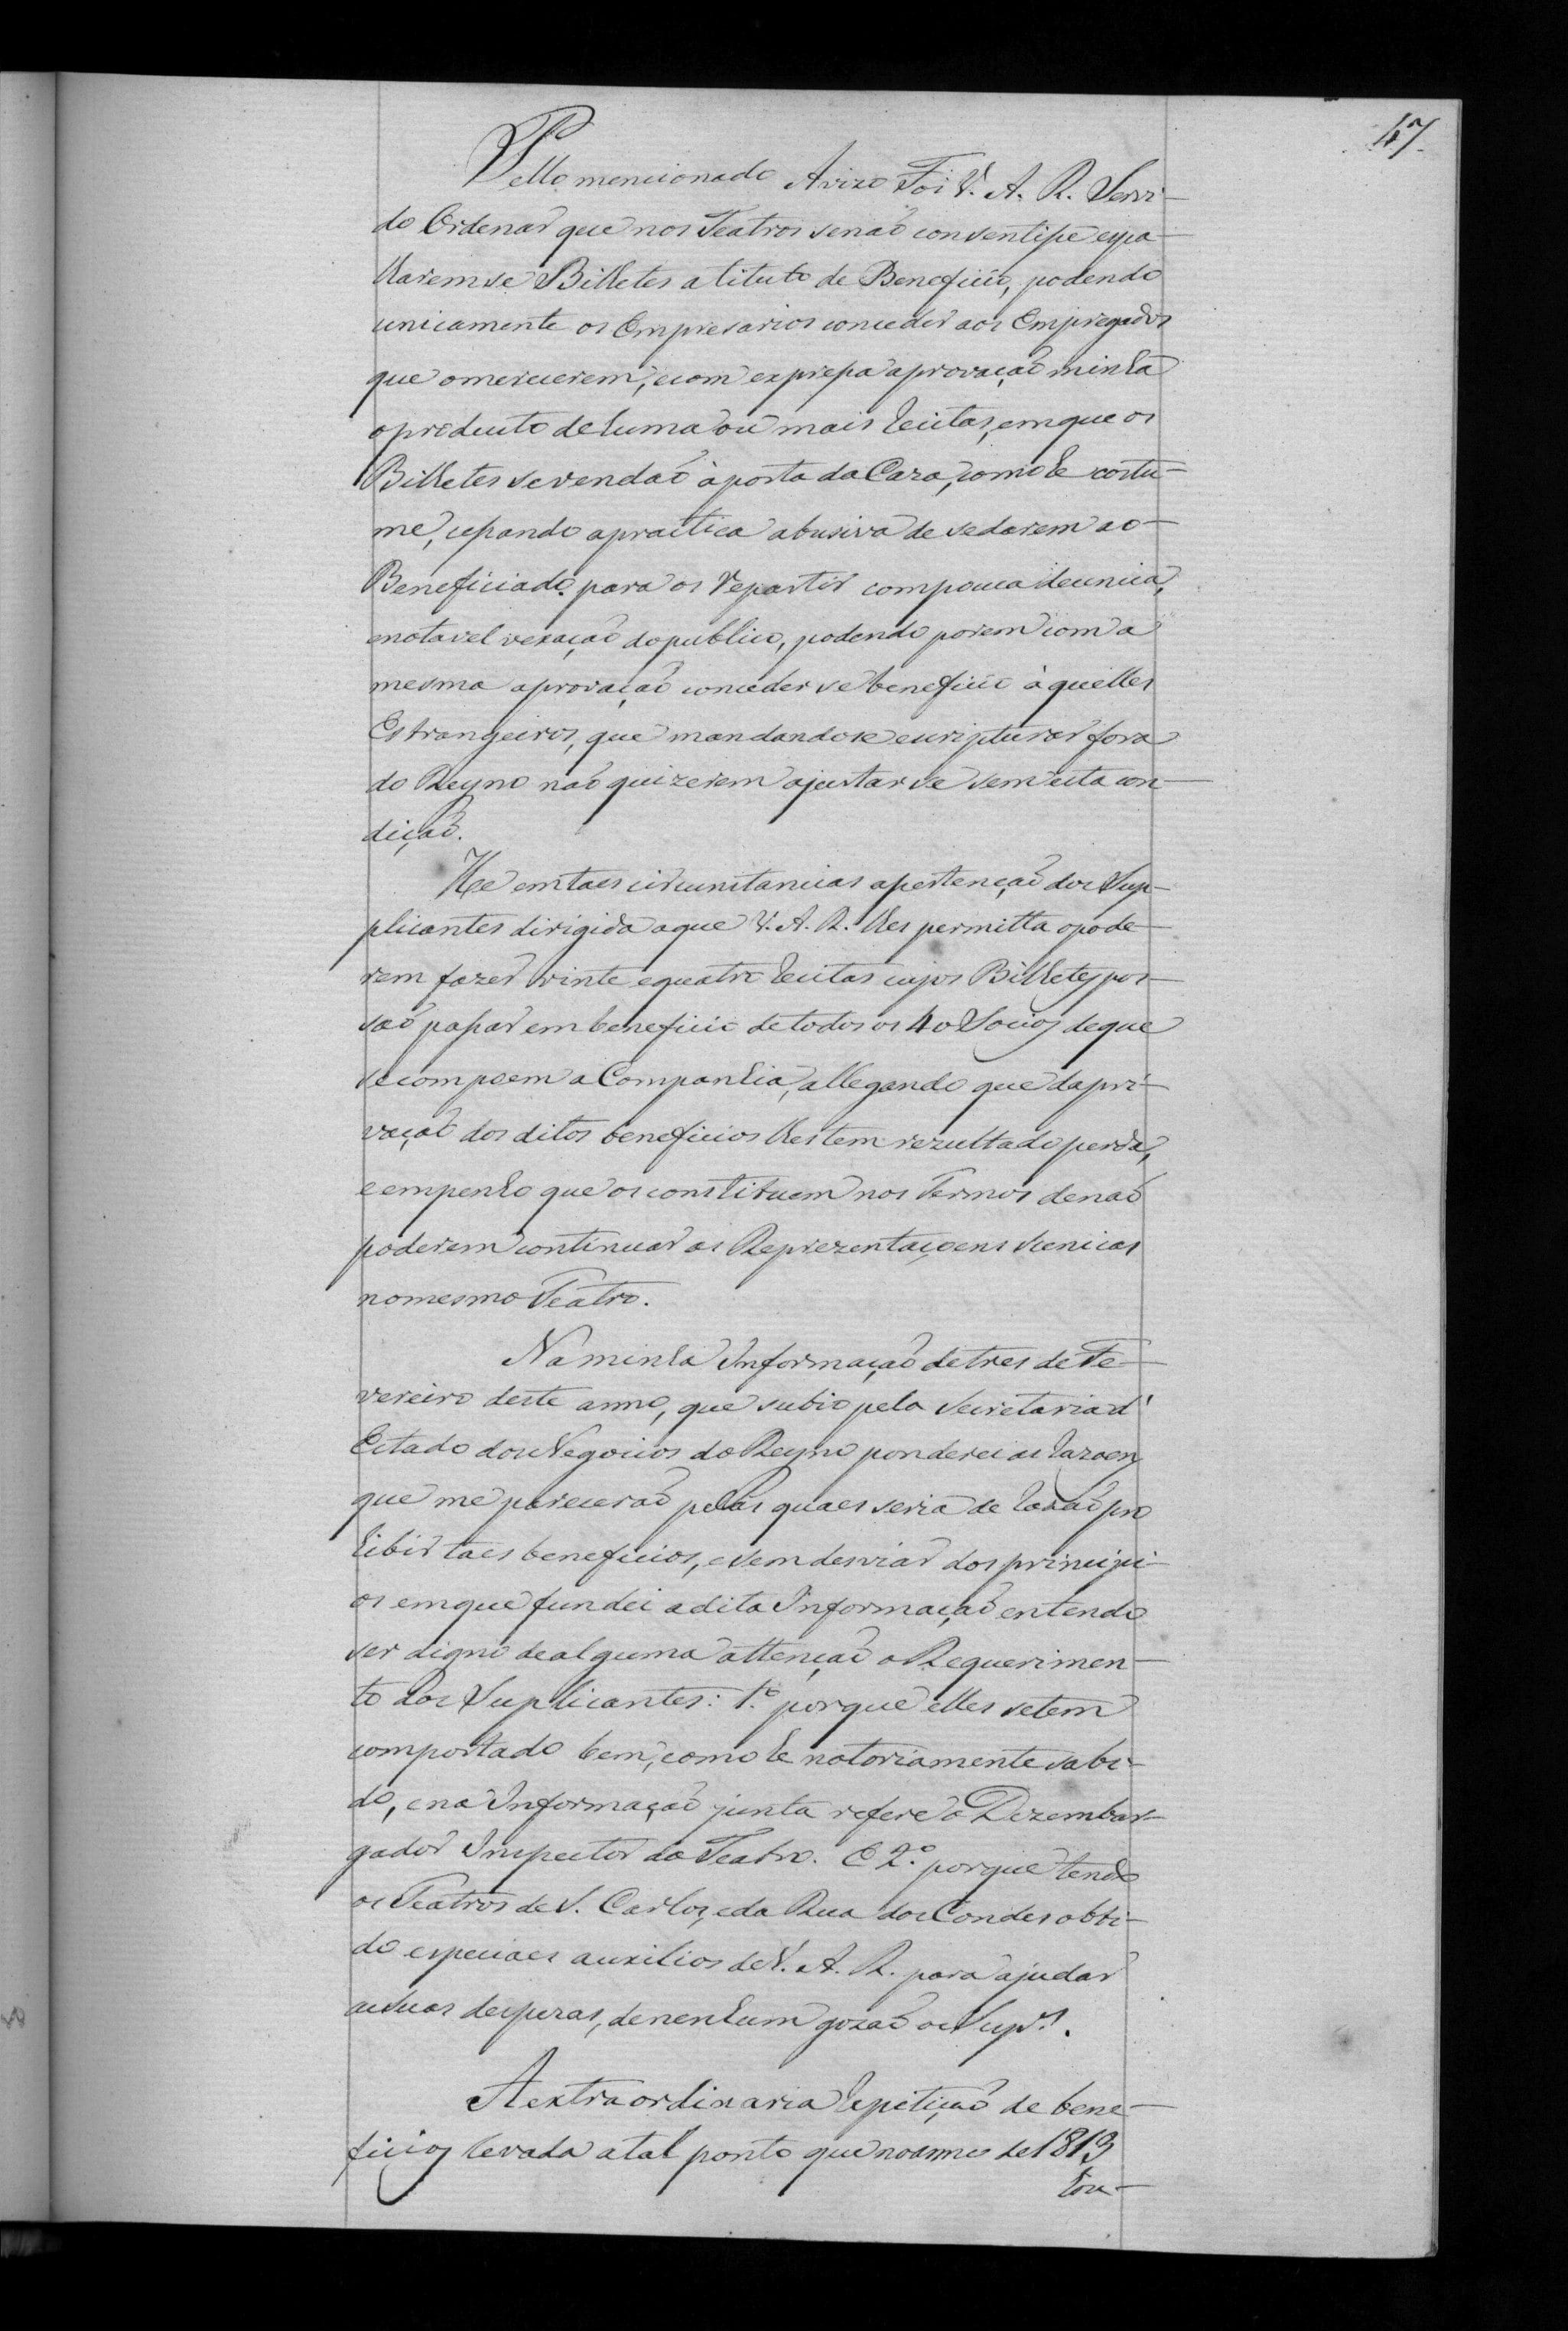 47.
Pello mencionado Avizo Foi V. A. R. Servi-
do Ordenar que nos Teatros senaõ consentisse espa-
lharemse Bilhetes a titulo de Beneficio, podendo
unicamente os Empresarios conceder aos Empregados
que o merecerem, e com expressa aprovaçaõ minha
o producto de huma ou mais recitas, em que os
Bilhetes se vendaõ à porta da Caza, como he costu-
me, cessando a practica abusiva de se darem ao
Beneficiado para os repartir com pouca decencia,
e notavel vexaçaõ do publico, podendo porem com a
mesma aprovaçaõ conceder se beneficio à quelles
Estrangeiros, que mandandose escripturar fora
do Reyno naõ quizerem ajustar se sem esta con-
diçaõ.
He em taes circunstancias a pertençaõ dos Sup-
plicantes dirigida a que V. A. R. lhes permitta o pode-
rem fazer vinte e quatro recitas cujos Bilhetes pos-
saõ passar em beneficio de todos os 40 Socios de que
se compoem a Companhia, allegando que da pri-
vaçaõ dos ditos beneficios lhes tem rezultado perda,
e empenho que os constituem nos Termos de naõ
poderem continuar as Reprezentaçoens scenicas
no mesmo Teatro.
Na minha Informaçaõ de tres de Fe-
vereiro deste anno, que subio pela Secretaria d'
Estado dos Negocios do Reyno ponderei as razoens
que me pareceraõ pelas quaes seria de razaõ pro
hibir taes beneficios, e sem desviar dos principi-
os em que fundei a dita Informaçaõ entendo
ser digno de alguma attençaõ o Requerimen-
to dos Suplicantes: 1.º porque elles se tem
comportado bem, como he notoriamente sabi-
do, e na Informaçaõ junta refere o Dezembar-
gador Inspector do Teatro. E 2.º porque tendo
os Teatros de S. Carlos, e da Rua dos Condes obti-
do especiaes auxilios de V. A. R. para ajudar
as suas despezas, de nenhum gozaõ os Sup.es.
A extraordinaria repetiçaõ de bene-
ficios levada a tal ponto que no anno de 1813
hou-